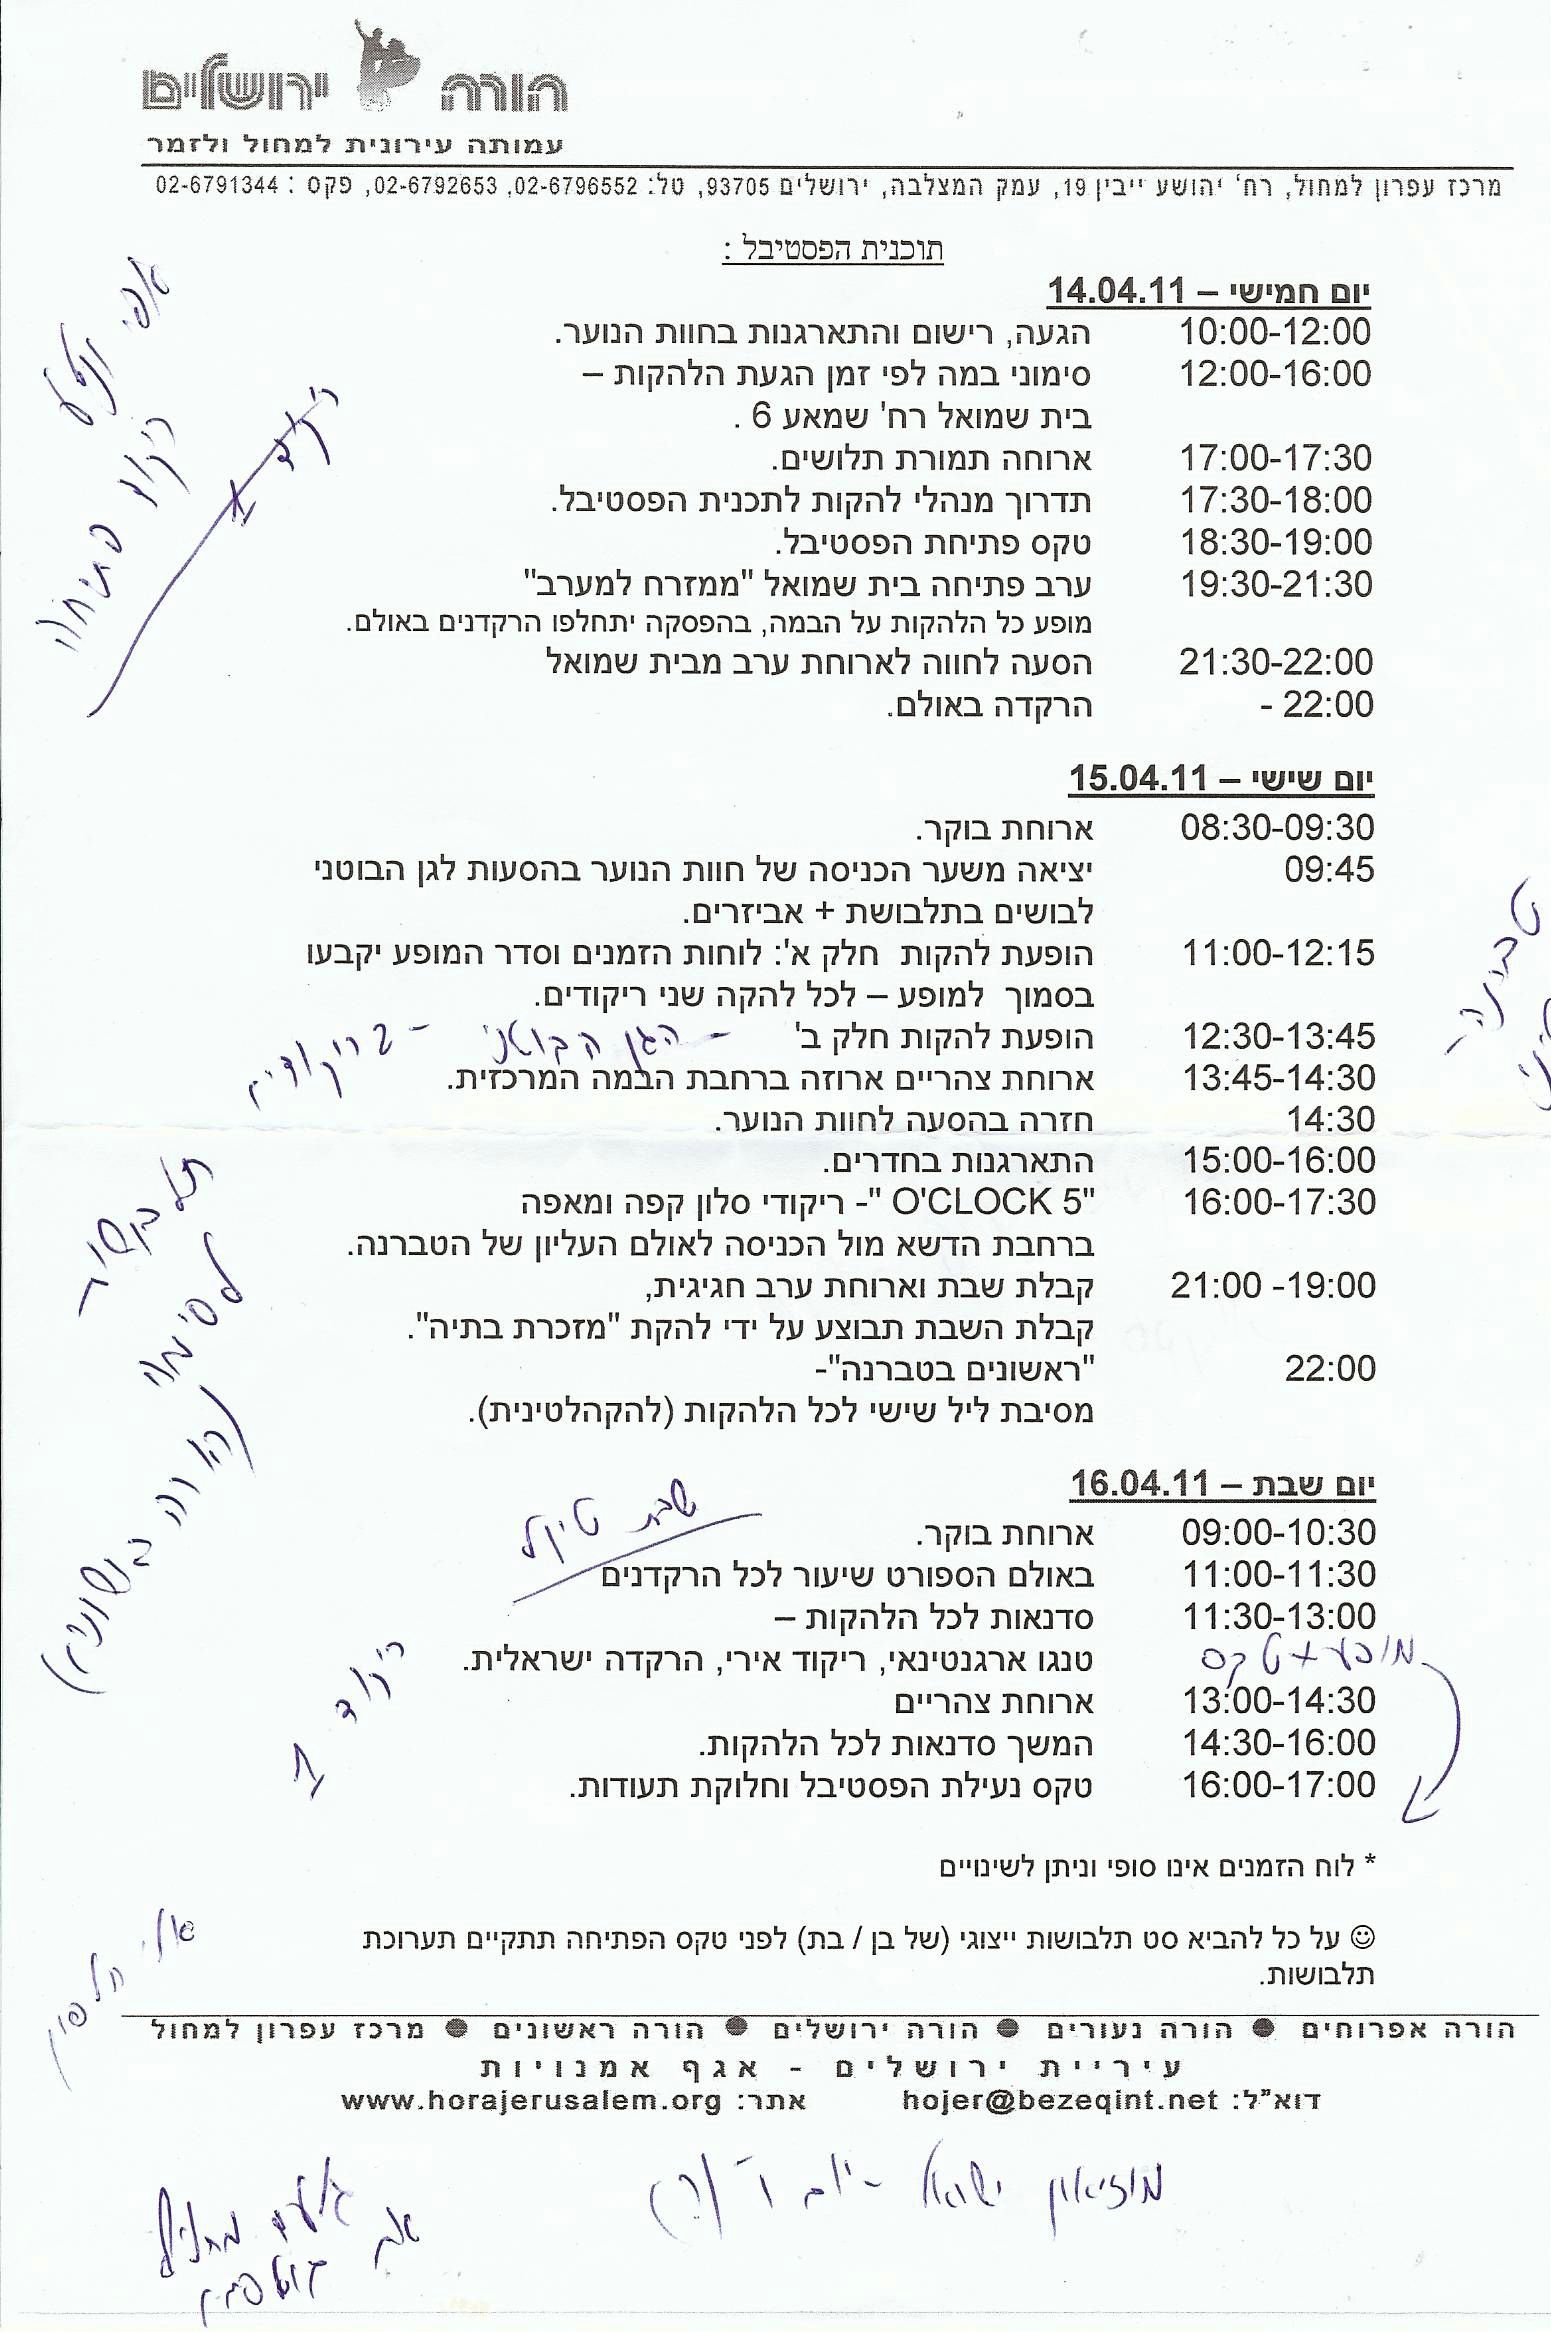 הורה ירושלים
עמותה עירונית למחול ולזמר
מרכז עפרון למחול, רח' יהושע ייבין 19, עמק המצלבה, ירושלים 93705, טל: 02-6796552, 02-6792653, פקס : 02-6791344
תוכנית הפסטיבל :
יום חמישי – 14.04.11
10:00-12:00 הגעה, רישום והתארגנות בחוות הנוער.
12:00-16:00 סימוני במה לפי זמן הגעת הלהקות –
בית שמואל רח' שמאע 6 .
17:00-17:30 ארוחה תמורת תלושים.
17:30-18:00 תדרוך מנהלי להקות לתכנית הפסטיבל.
18:30-19:00 טקס פתיחת הפסטיבל.
19:30-21:30 ערב פתיחה בית שמואל "ממזרח למערב"
מופע כל הלהקות על הבמה, בהפסקה יתחלפו הרקדנים באולם.
21:30-22:00 הסעה לחווה לארוחת ערב מבית שמואל
22:00 - הרקדה באולם.
ריקוד פתיחה
ריקוד א
יום שישי – 15.04.11
08:30-09:30 ארוחת בוקר.
09:45 יציאה משער הכניסה של חוות הנוער בהסעות לגן הבוטני
לבושים בתלבושת + אביזרים.
11:00-12:15 הופעת להקות חלק א': לוחות הזמנים וסדר המופע יקבעו
בסמוך למופע – לכל להקה שני ריקודים.
12:30-13:45 הופעת להקות חלק ב' - הגן הבוטני - 2 ריקודים
13:45-14:30 ארוחת צהריים ארוזה ברחבת הבמה המרכזית.
14:30 חזרה בהסעה לחוות הנוער.
15:00-16:00 התארגנות בחדרים.
16:00-17:30 "O'CLOCK 5 "- ריקודי סלון קפה ומאפה
ברחבת הדשא מול הכניסה לאולם העליון של הטברנה.
19:00- 21:00 קבלת שבת וארוחת ערב חגיגית,
קבלת השבת תבוצע על ידי להקת "מזכרת בתיה".
22:00 "ראשונים בטברנה"-
מסיבת ליל שישי לכל הלהקות (להקהלטינית).
יום שבת – 16.04.11
שבת טיפל
09:00-10:30 ארוחת בוקר.
11:00-11:30 באולם הספורט שיעור לכל הרקדנים
11:30-13:00 סדנאות לכל הלהקות –
מופע + טקס טנגו ארגנטינאי, ריקוד אירי, הרקדה ישראלית.
13:00-14:30 ארוחת צהריים
14:30-16:00 המשך סדנאות לכל הלהקות.
16:00-17:00 טקס נעילת הפסטיבל וחלוקת תעודות.
ריקוד
* לוח הזמנים אינו סופי וניתן לשינויים
☺ על כל להביא סט תלבושות ייצוגי (של בן / בת) לפני טקס הפתיחה תתקיים תערוכת
תלבושות.
הורה אפרוחים ● הורה נעורים ● הורה ירושלים ● הורה ראשונים ● מרכז עפרון למחול
עיריית ירושלים - אגף אמנויות
דוא"ל: hojer@bezeqint.net אתר: www.horajerusalem.org
מוזיאון ישראל - יום ו'